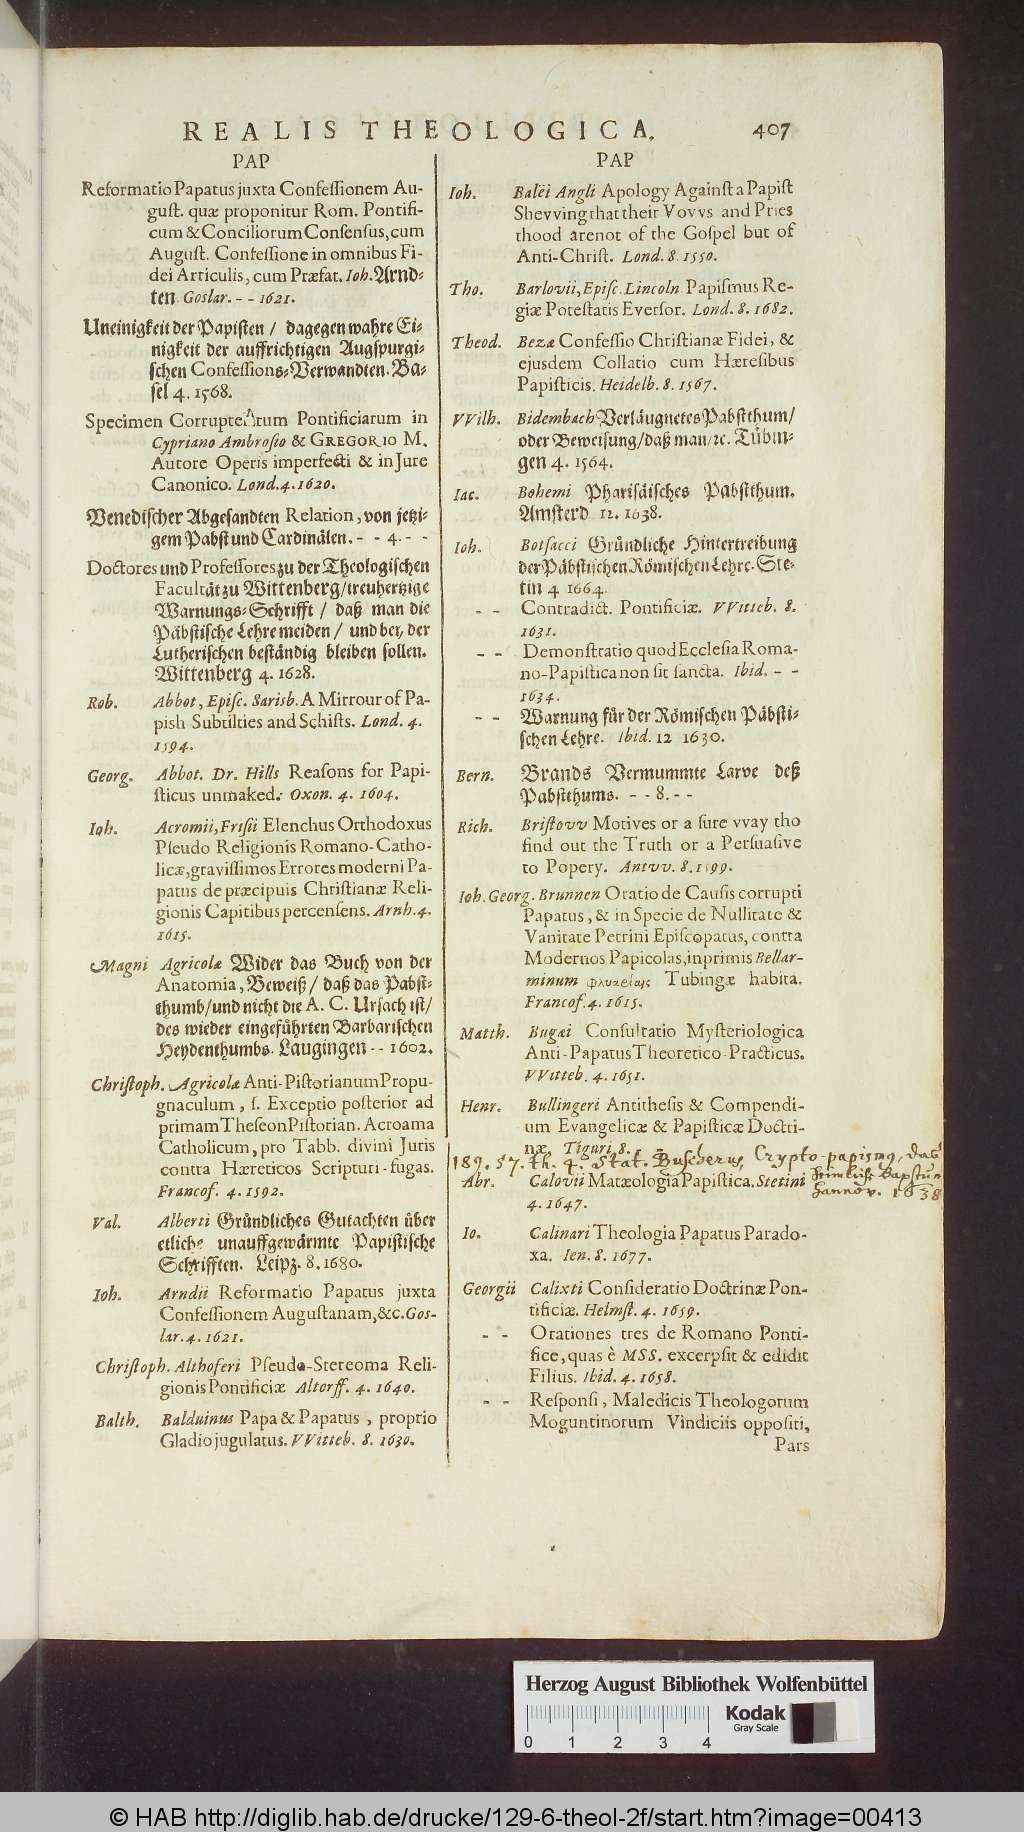 REALIS THEOLOGICA. 407
PAP
Reformatio Papatus juxta Confessionem Au-
gust. quæ proponitur Rom. Pontifi-
cum & Conciliorum Consensus, cum
August. Confessione in omnibus Fi-
dei Articulis, cum Præfat. Ioh. Arnd-
ten Goslar. - - 1621.
Uneinigkeit der Papisten / dagegen wahre Ei-
nigkeit der auffrichtigen Augspurgi-
schen Confessions-Verwandten. Ba-
sel 4. 1568.
Specimen Corruptelarum Pontificiarum in
Cypriano Ambrosio & GREGORIO M.
Autore Operis imperfecti & in Jure
Canonico. Lond. 4. 1620.
Venedischer Abgesandten Relation, von jetzi-
gem Pabst und Cardinälen. - - 4. - -
Doctores und Professores zu der Theologischen
Facultät zu Wittenberg / treuhertzige
Warnungs-Schrifft / daß man die
Päbstische Lehre meiden / und bey der
Lutherischen beständig bleiben sollen.
Wittenberg 4. 1628.
Rob. Abbot, Episc. Sarisb. A Mirrour of Pa-
pish Subtilties and Schifts. Lond. 4.
1594.
Georg. Abbot. Dr. Hills Reasons for Papi-
sticus unmaked. Oxon. 4. 1604.
Ioh. Acromii, Frisii Elenchus Orthodoxus
Pseudo Religionis Romano-Catho-
licæ, gravissimos Errores moderni Pa-
patus de præcipuis Christianæ Reli-
gionis Capitibus percensens. Arnh. 4.
1615.
Magni Agricolæ Wider das Buch von der
Anatomia, Beweiß / daß das Pabst-
thumb / und nicht die A. C. Ursach ist /
des wieder eingeführten Barbarischen
Heydenthumbs. Laugingen - - 1602.
Christoph. Agricolæ Anti-Pistorianum Propu-
gnaculum, s. Exceptio posterior ad
primam Theseon Pistorian. Acroama
Catholicum, pro Tabb. divini Juris
contra Hæreticos Scripturi-fugas.
Francof. 4. 1592.
Val. Alberti Gründliches Gutachten über
etliche unauffgewärmte Papistische
Schrifften. Leipz. 8. 1680.
Ioh. Arndii Reformatio Papatus juxta
Confessionem Augustanam, &c. Gos-
lar. 4. 1621.
Christoph. Althoferi Pseudo-Stereoma Reli-
gionis Pontificiæ Altorff. 4. 1640.
Balth. Balduinus Papa & Papatus, proprio
Gladio jugulatus. VVitteb. 8. 1630.
PAP
Ioh. Balëi Angli Apology Against a Papist
Shevving that their Vovvs and Pries
thood arenot of the Gospel but of
Anti-Christ. Lond. 8. 1550.
Tho. Barlovii, Episc. Lincoln. Papismus Re-
giæ Potestatis Eversor. Lond. 8. 1682.
Theod. Bezæ Confessio Christianæ Fidei, &
ejusdem Collatio cum Hæresibus
Papisticis. Heidelb. 8. 1567.
VVilh. Bidembach Verläugnetes Pabstthum /
oder Beweisung / daß man / ec. Tübin-
gen 4. 1564.
Iac. Bohemi Pharisäisches Pabstthum.
Amsterd 12. 1638.
Ioh. Botsacci Gründliche Hintertreibung
der Päbstischen Römischen Lehre. Ste-
tin 4 1664.
- - Contradict. Pontificiæ. VVitteb. 8.
1631.
- - Demonstratio quod Ecclesia Roma-
no-Papistica non sit sancta. Ibid. - -
1634.
- - Warnung für der Römischen Päbsti-
schen Lehre. Ibid. 12 1630.
Bern. Brands Vermummte Larve deß
Pabstthums. - - 8. - -
Rich. Bristovv Motives or a sure vvay tho
find out the Truth or a Persuasive
to Popery. Antvv. 8. 1599.
Ioh. Georg. Brunnen Oratio de Causis corrupti
Papatus, & in Specie de Nullitate &
Vanitate Petrini Episcopatus, contra
Modernos Papicolas, inprimis Bellar-
minum Tubingæ habita.
Francof. 4. 1615.
Matth. Bugæi Consultatio Mysteriologica
Anti-Papatus Theoretico-Practicus.
VVitteb. 4. 1651.
Henr. Bullingeri Antithesis & Compendi-
um Evangelicæ & Papisticæ Doctri-
næ. Tiguri, 8.
189. 57. th. 4. Stat. Buscherus, Crypto-papismus, das
heimliche Bapstum
Hannov. 1638
Abr. Calovii Matæologia Papistica. Stetini
4. 1647.
Io. Calinari Theologia Papatus Parado-
xa. Ien. 8. 1677.
Georgii Calixti Consideratio Doctrinæ Pon-
tificiæ. Helmst. 4. 1659.
- - Orationes tres de Romano Ponti-
fice, quas è MSS. excerpsit & edidit
Filius. Ibid. 4. 1658.
- - Responsi, Maledicis Theologorum
Moguntinorum Vindiciis oppositi,
Pars
Herzog August Bibliothek Wolfenbüttel
0 1 2 3 4
Kodak
Gray Scale
© HAB http://diglib.hab.de/drucke/129-6-theol-2f/start.htm?image=00413